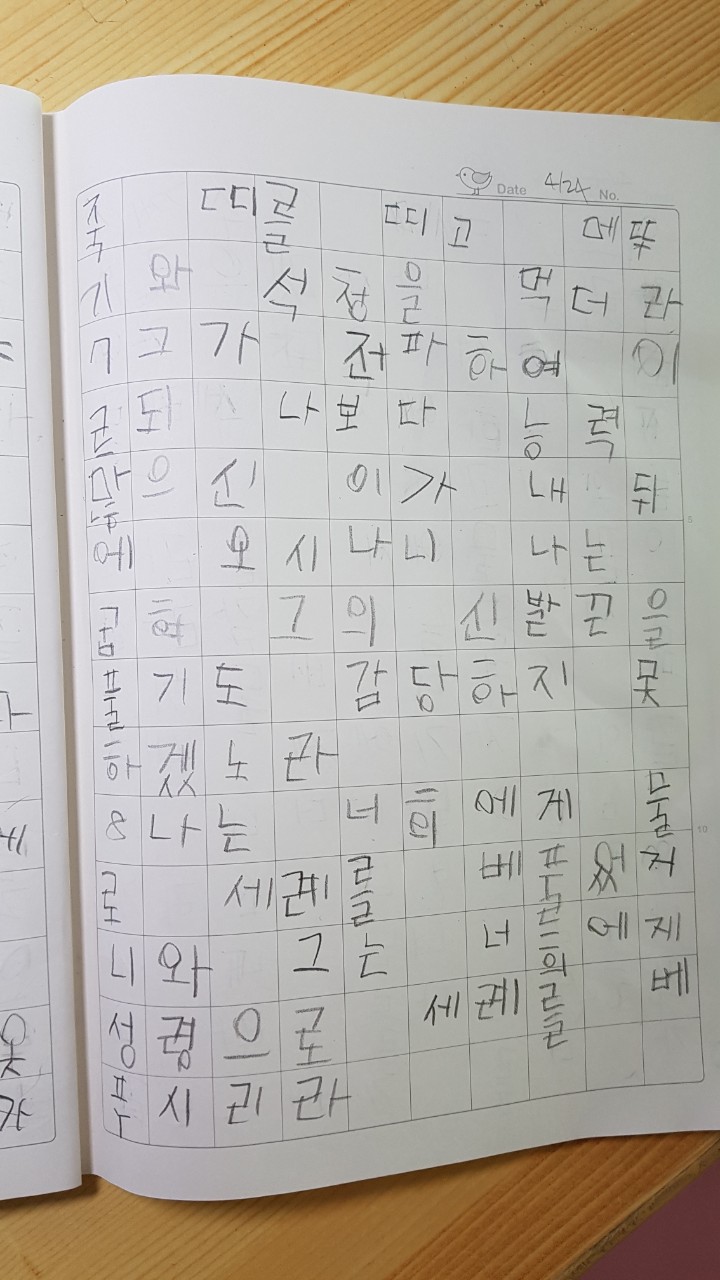 Date 4/24 No.
죽 띠를 띠고 메뚜
기와 석청을 먹더라
7그가 전파하여 이
르되 나보다 능력
많으신 이가 내 뒤
에 오시나니 나는
굽혀 그의 신발끈을
풀기도 감당하지 못
하겠노라
8나는 너희에게 물
로 세례를 베풀었거
니와 그는 너희에게
성령으로 세례를 베
푸시리라